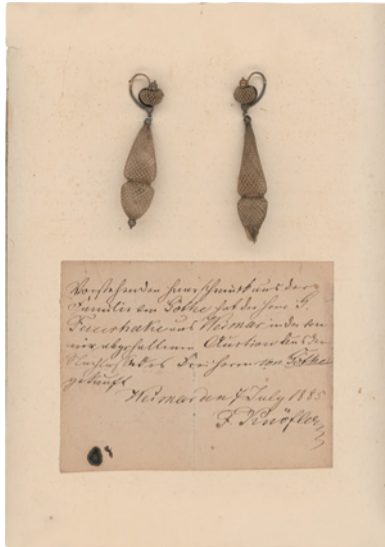 Vorstehenden Haarschmuck aus der
Familie von Göthe hat der Herr G.
Feuerhake aus Weimar in der von
mir abgehaltenen Auction aus dem
Nachlaß des Freiherrn von Göthe
gekauft
Weimar den 7 July 1885
F. Knöfler